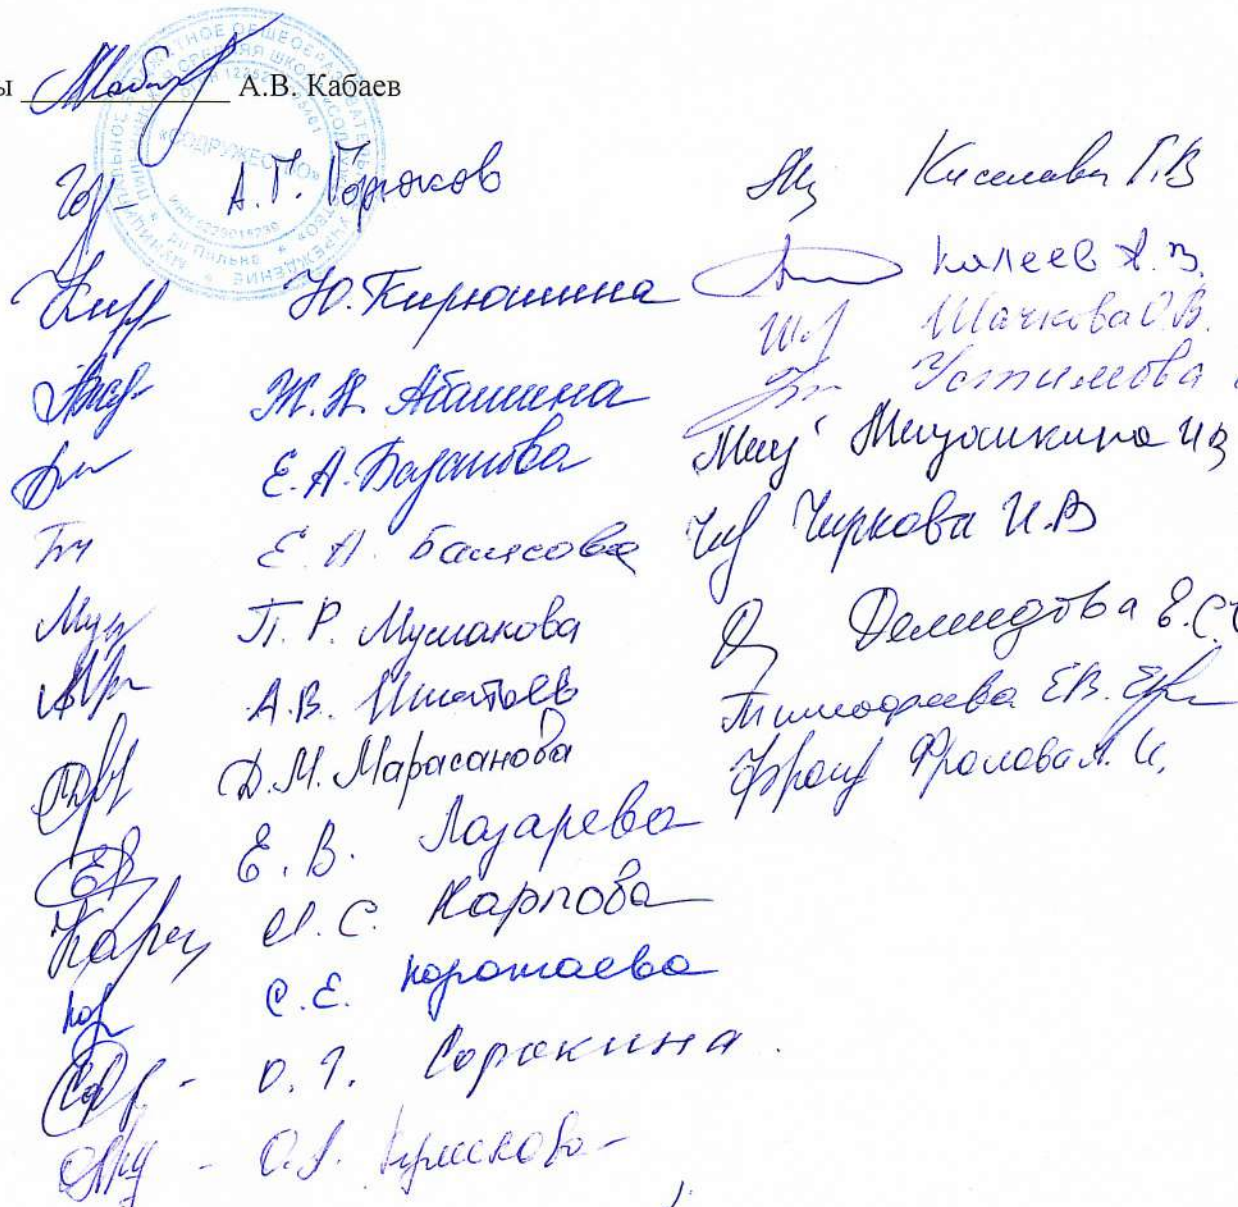 ы А.В. Кабаев
«СОДРУЖЕСТВО»
А.Г. Горюхов
Ю. Кирюшина
Ж.Н. Абашина
Е.А. Базанова
Е.А. Балясова
П.Р. Мушакова
А.В. Игнатьев
Д.М. Марасанова
Е.В. Лазарева
И.С. Карпова
С.Е. Коротаева
О.Г. Сорокина
О.А.
Киселева Г.В
Калеев А.В.
Шачкова О.В.
Устимова
И В
Чиркова И.В
Демидова Е.С.
Тимофеева Е.В.
Фролова А.И.